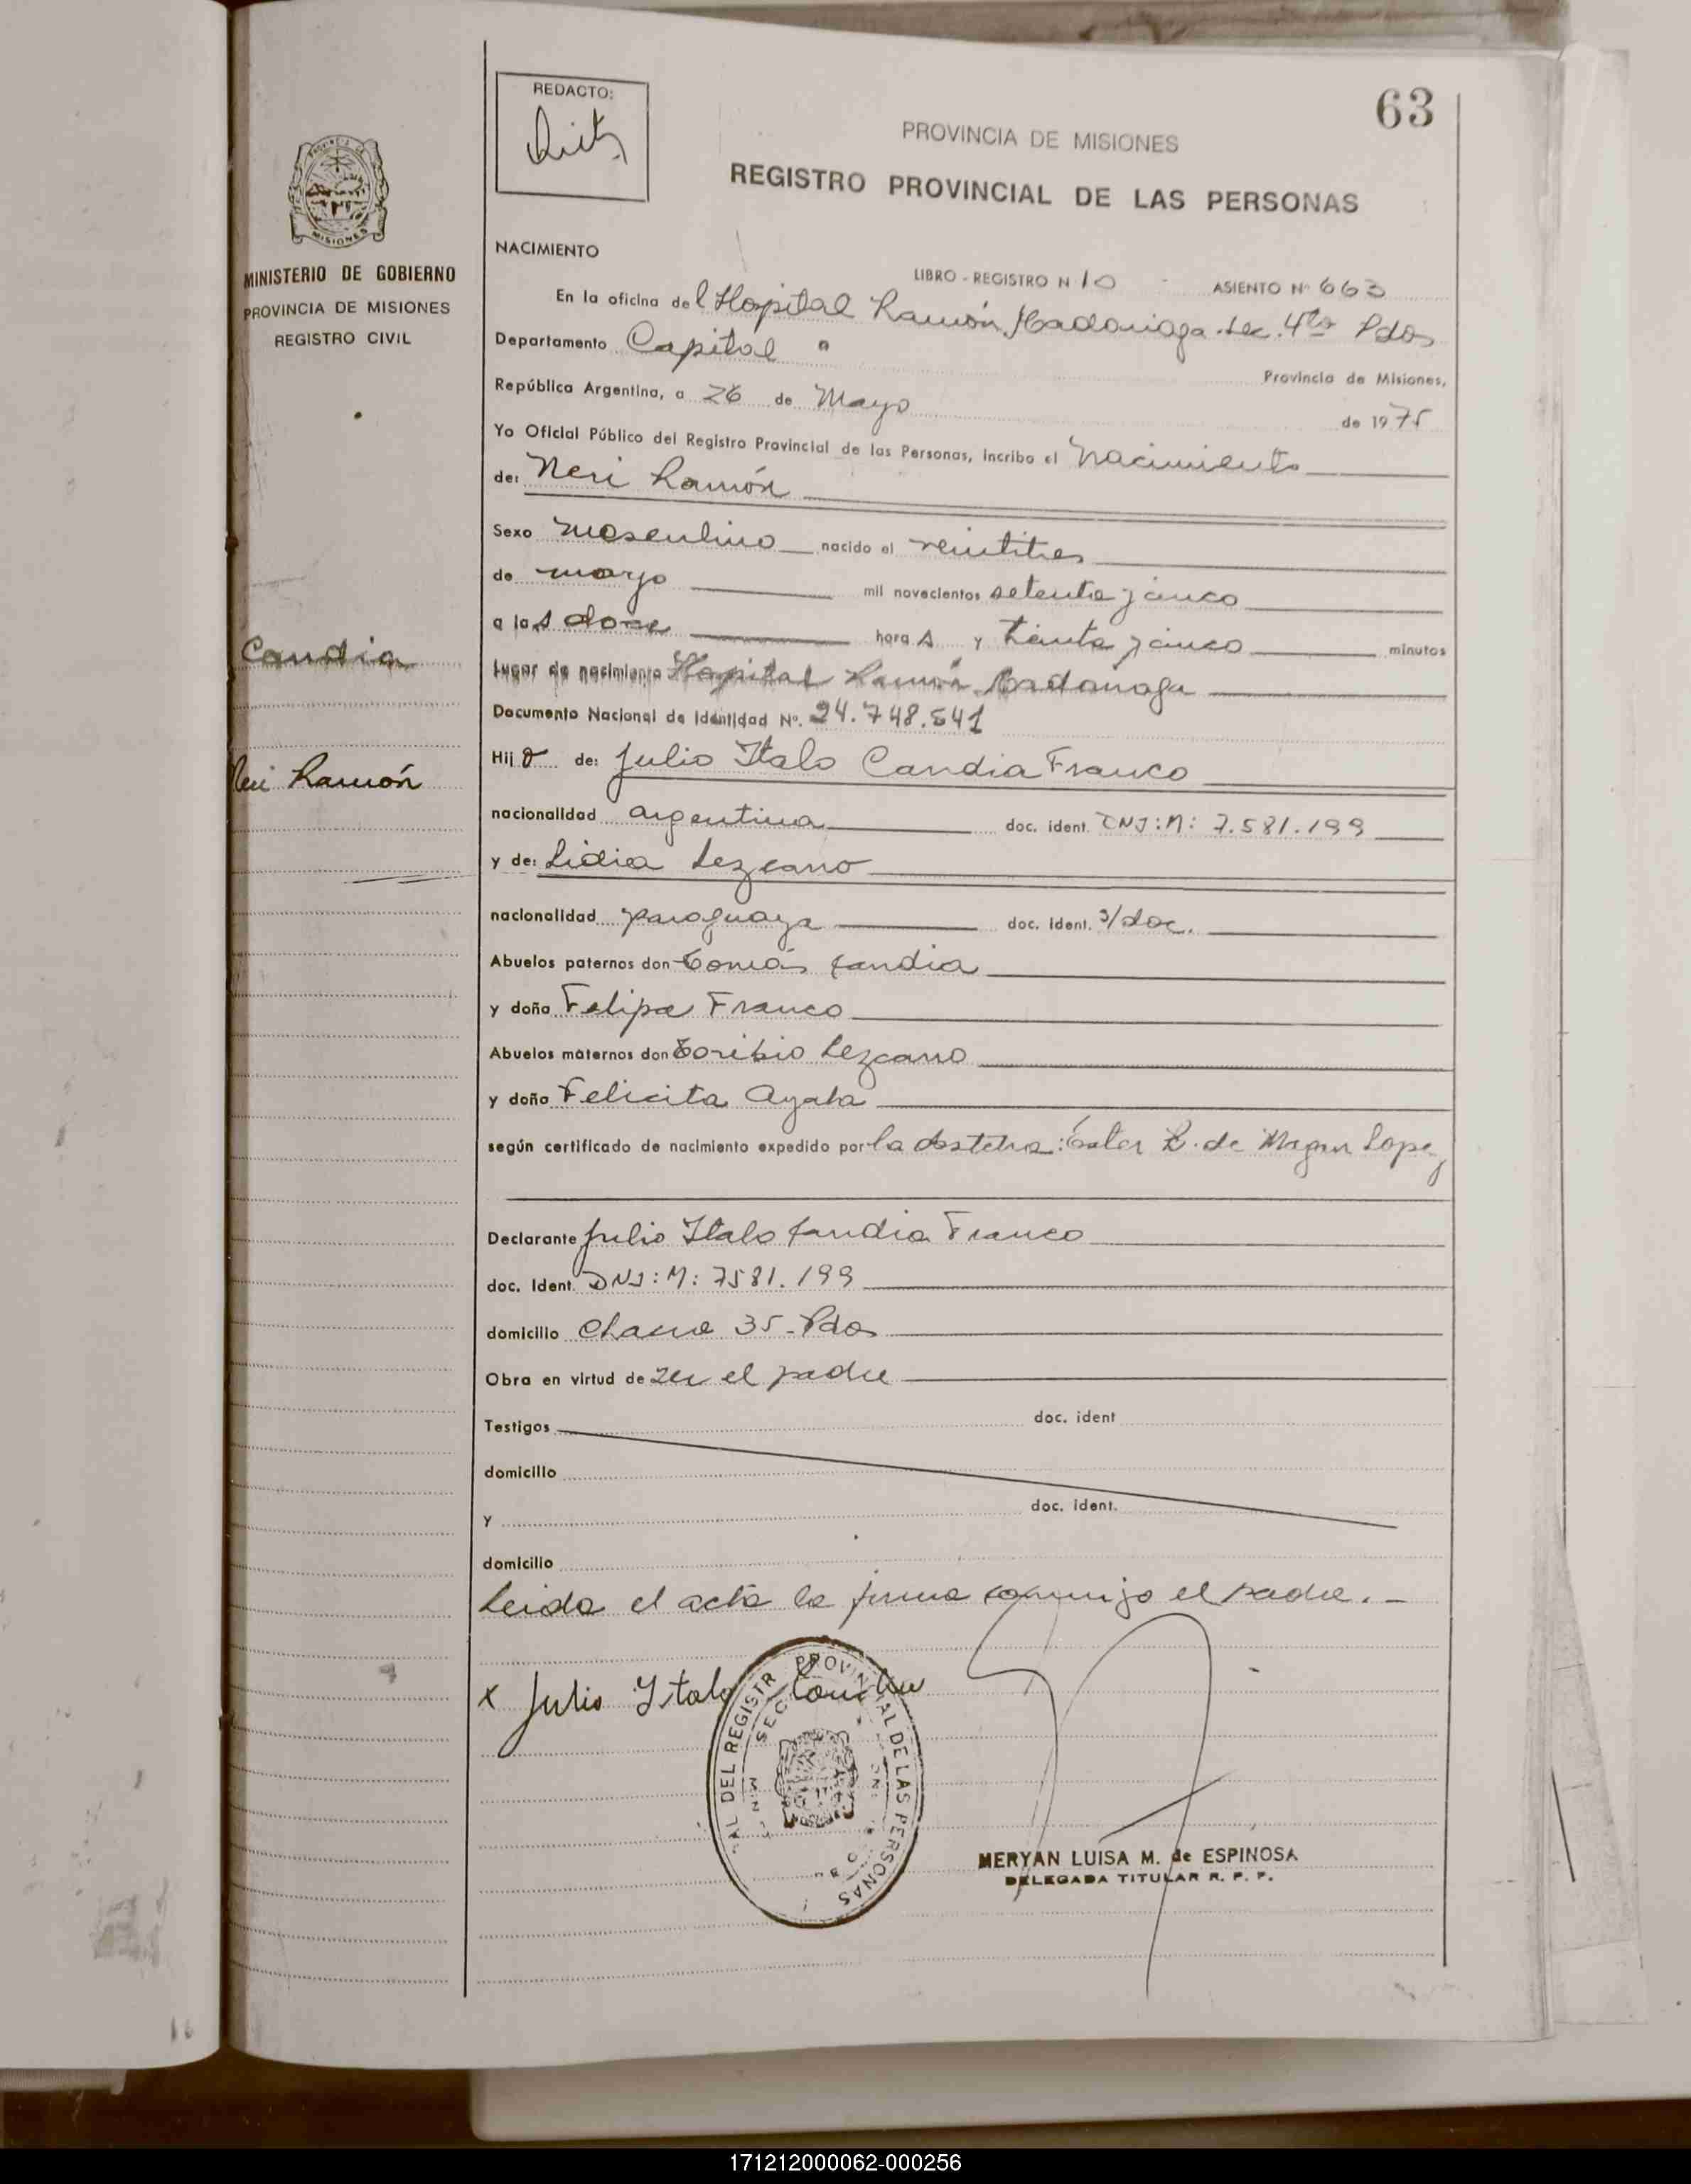 63
REDACTO:
PROVINCIA DE MISIONES
REGISTRO PROVINCIAL DE LAS PERSONAS
PROVINCIA DE
MISIONES
MINISTERIO DE GOBIERNO
PROVINCIA DE MISIONES
REGISTRO CIVIL
Candia
Neri Ramón
NACIMIENTO
LIBRO - REGISTRO N 10 ASIENTO Nº 663
En la oficina del Hospital Ramón Madariaga Sec. 4ta Pdas
Departamento Capital
Provincia de Misiones,
República Argentina, a 26 de Mayo de 1975
Yo Oficial Público del Registro Provincial de las Personas, incribo el Nacimiento
de: Neri Ramón
Sexo masculino nacido el veintitres
de mayo mil novecientos setenta y cinco
a las doce horas y treinta y cinco minutos
Lugar de nacimiento Hospital Ramón Madariaga
Documento Nacional de Identidad Nº. 24.748.541
Hijo de: Julio Italo Candia Franco
nacionalidad argentina doc. ident. DNI:M: 7.581.199
y de: Lidia Lezcano
nacionalidad paraguaya doc. ident. s/doc.
Abuelos paternos don Tomás Candia
y doña Felipa Franco
Abuelos maternos don Toribio Lezcano
y doña Felicita Ayala
según certificado de nacimiento expedido por la obstetra: Ester R. de Lopez
Declarante Julio Italo Candia Franco
doc. Ident. DNI:M: 7581.199
domicilio Chacra 35-Pdas
Obra en virtud de ser el padre
Testigos doc. ident
domicilio
y doc. ident.
domicilio
Leida el acta la firma conmigo el padre.-
x Julio Italo Candia
PROVINCIAL DE LAS PERSONAS
MERYAN LUISA M. de ESPINOSA
DELEGADA TITULAR R. P. P.
171212000062-000256